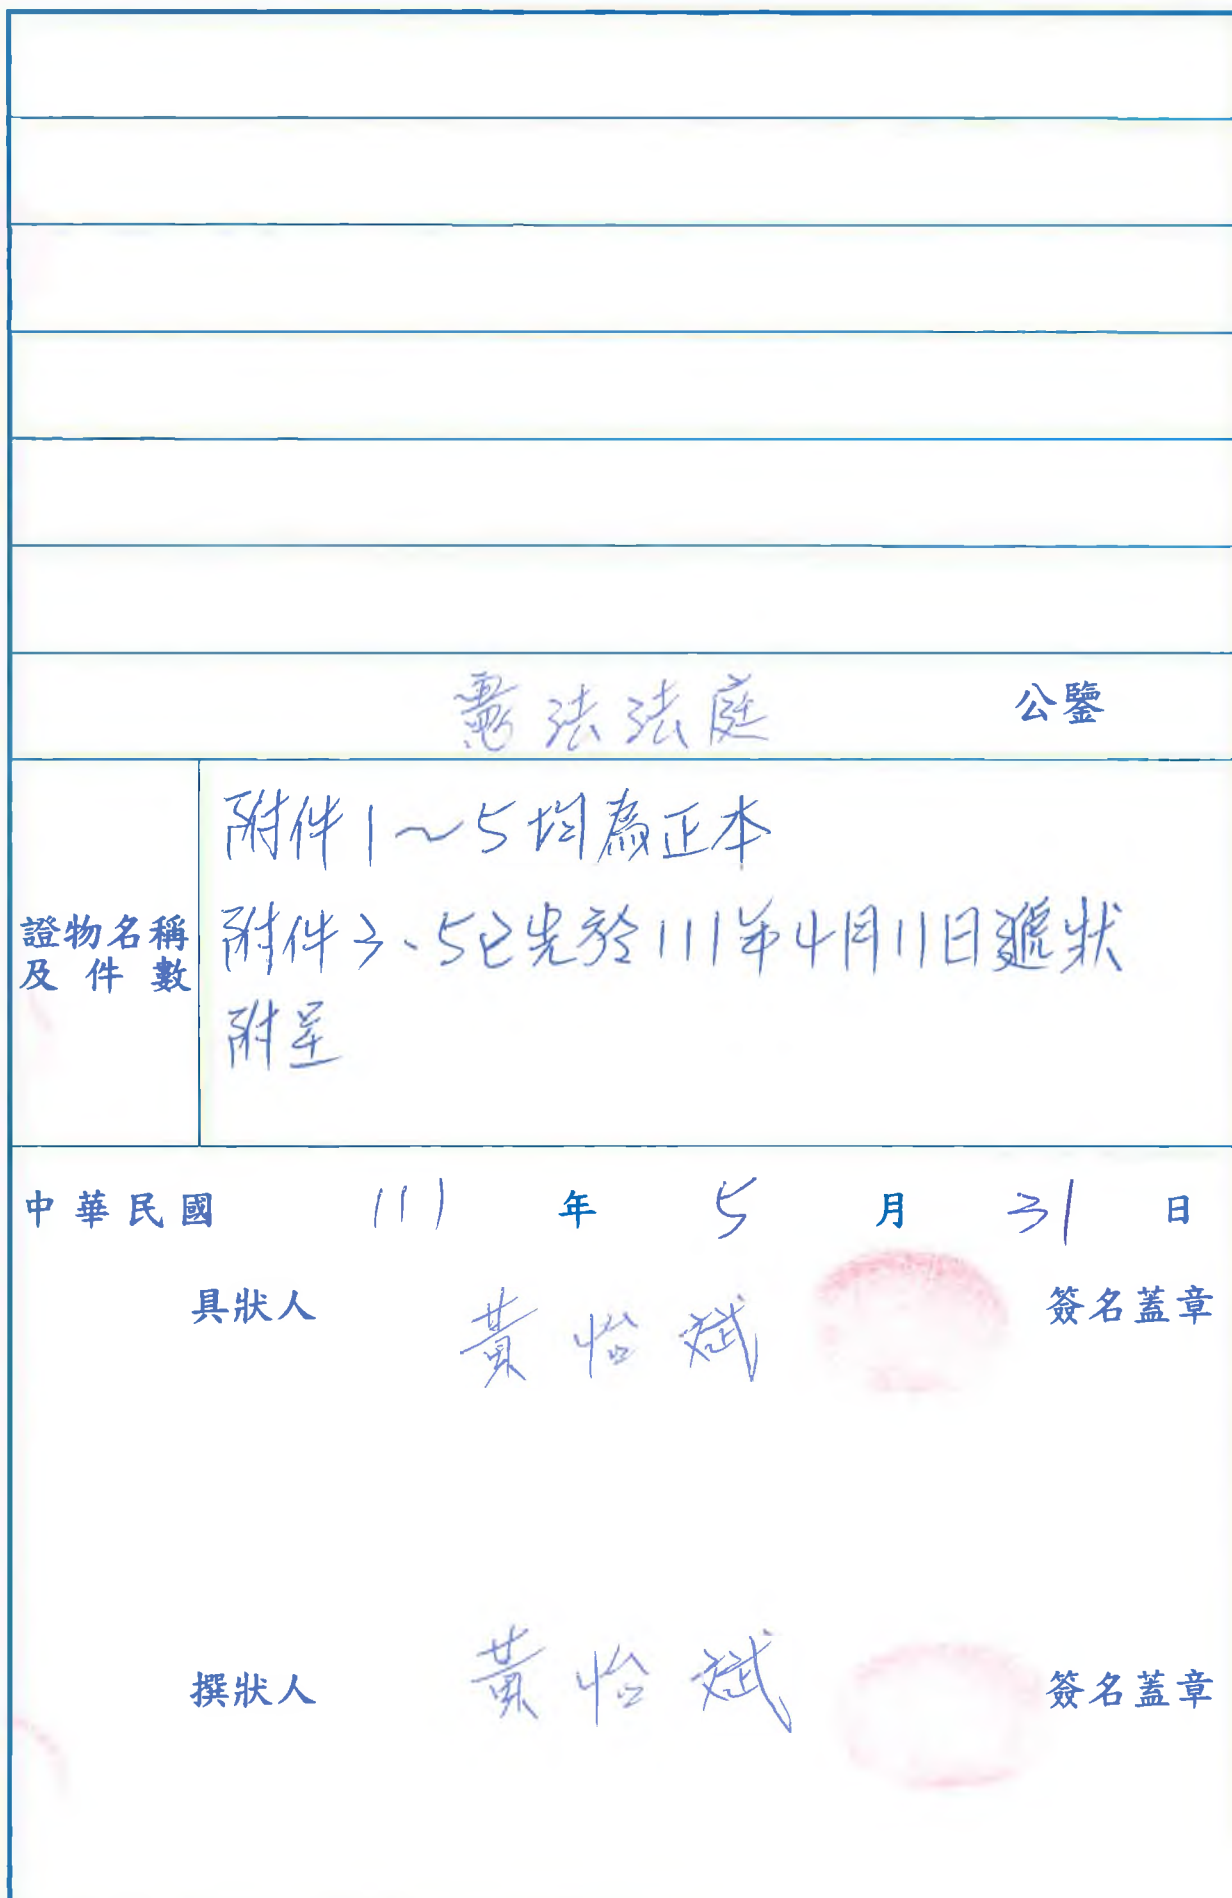 憲法法庭 公鑒
證物名稱及件數
附件1~5均為正本
附件3、5已先於111年4月11日遞狀
附呈
中華民國 111 年 5 月 31 日
具狀人 黃怡斌 簽名蓋章
撰狀人 黃怡斌 簽名蓋章